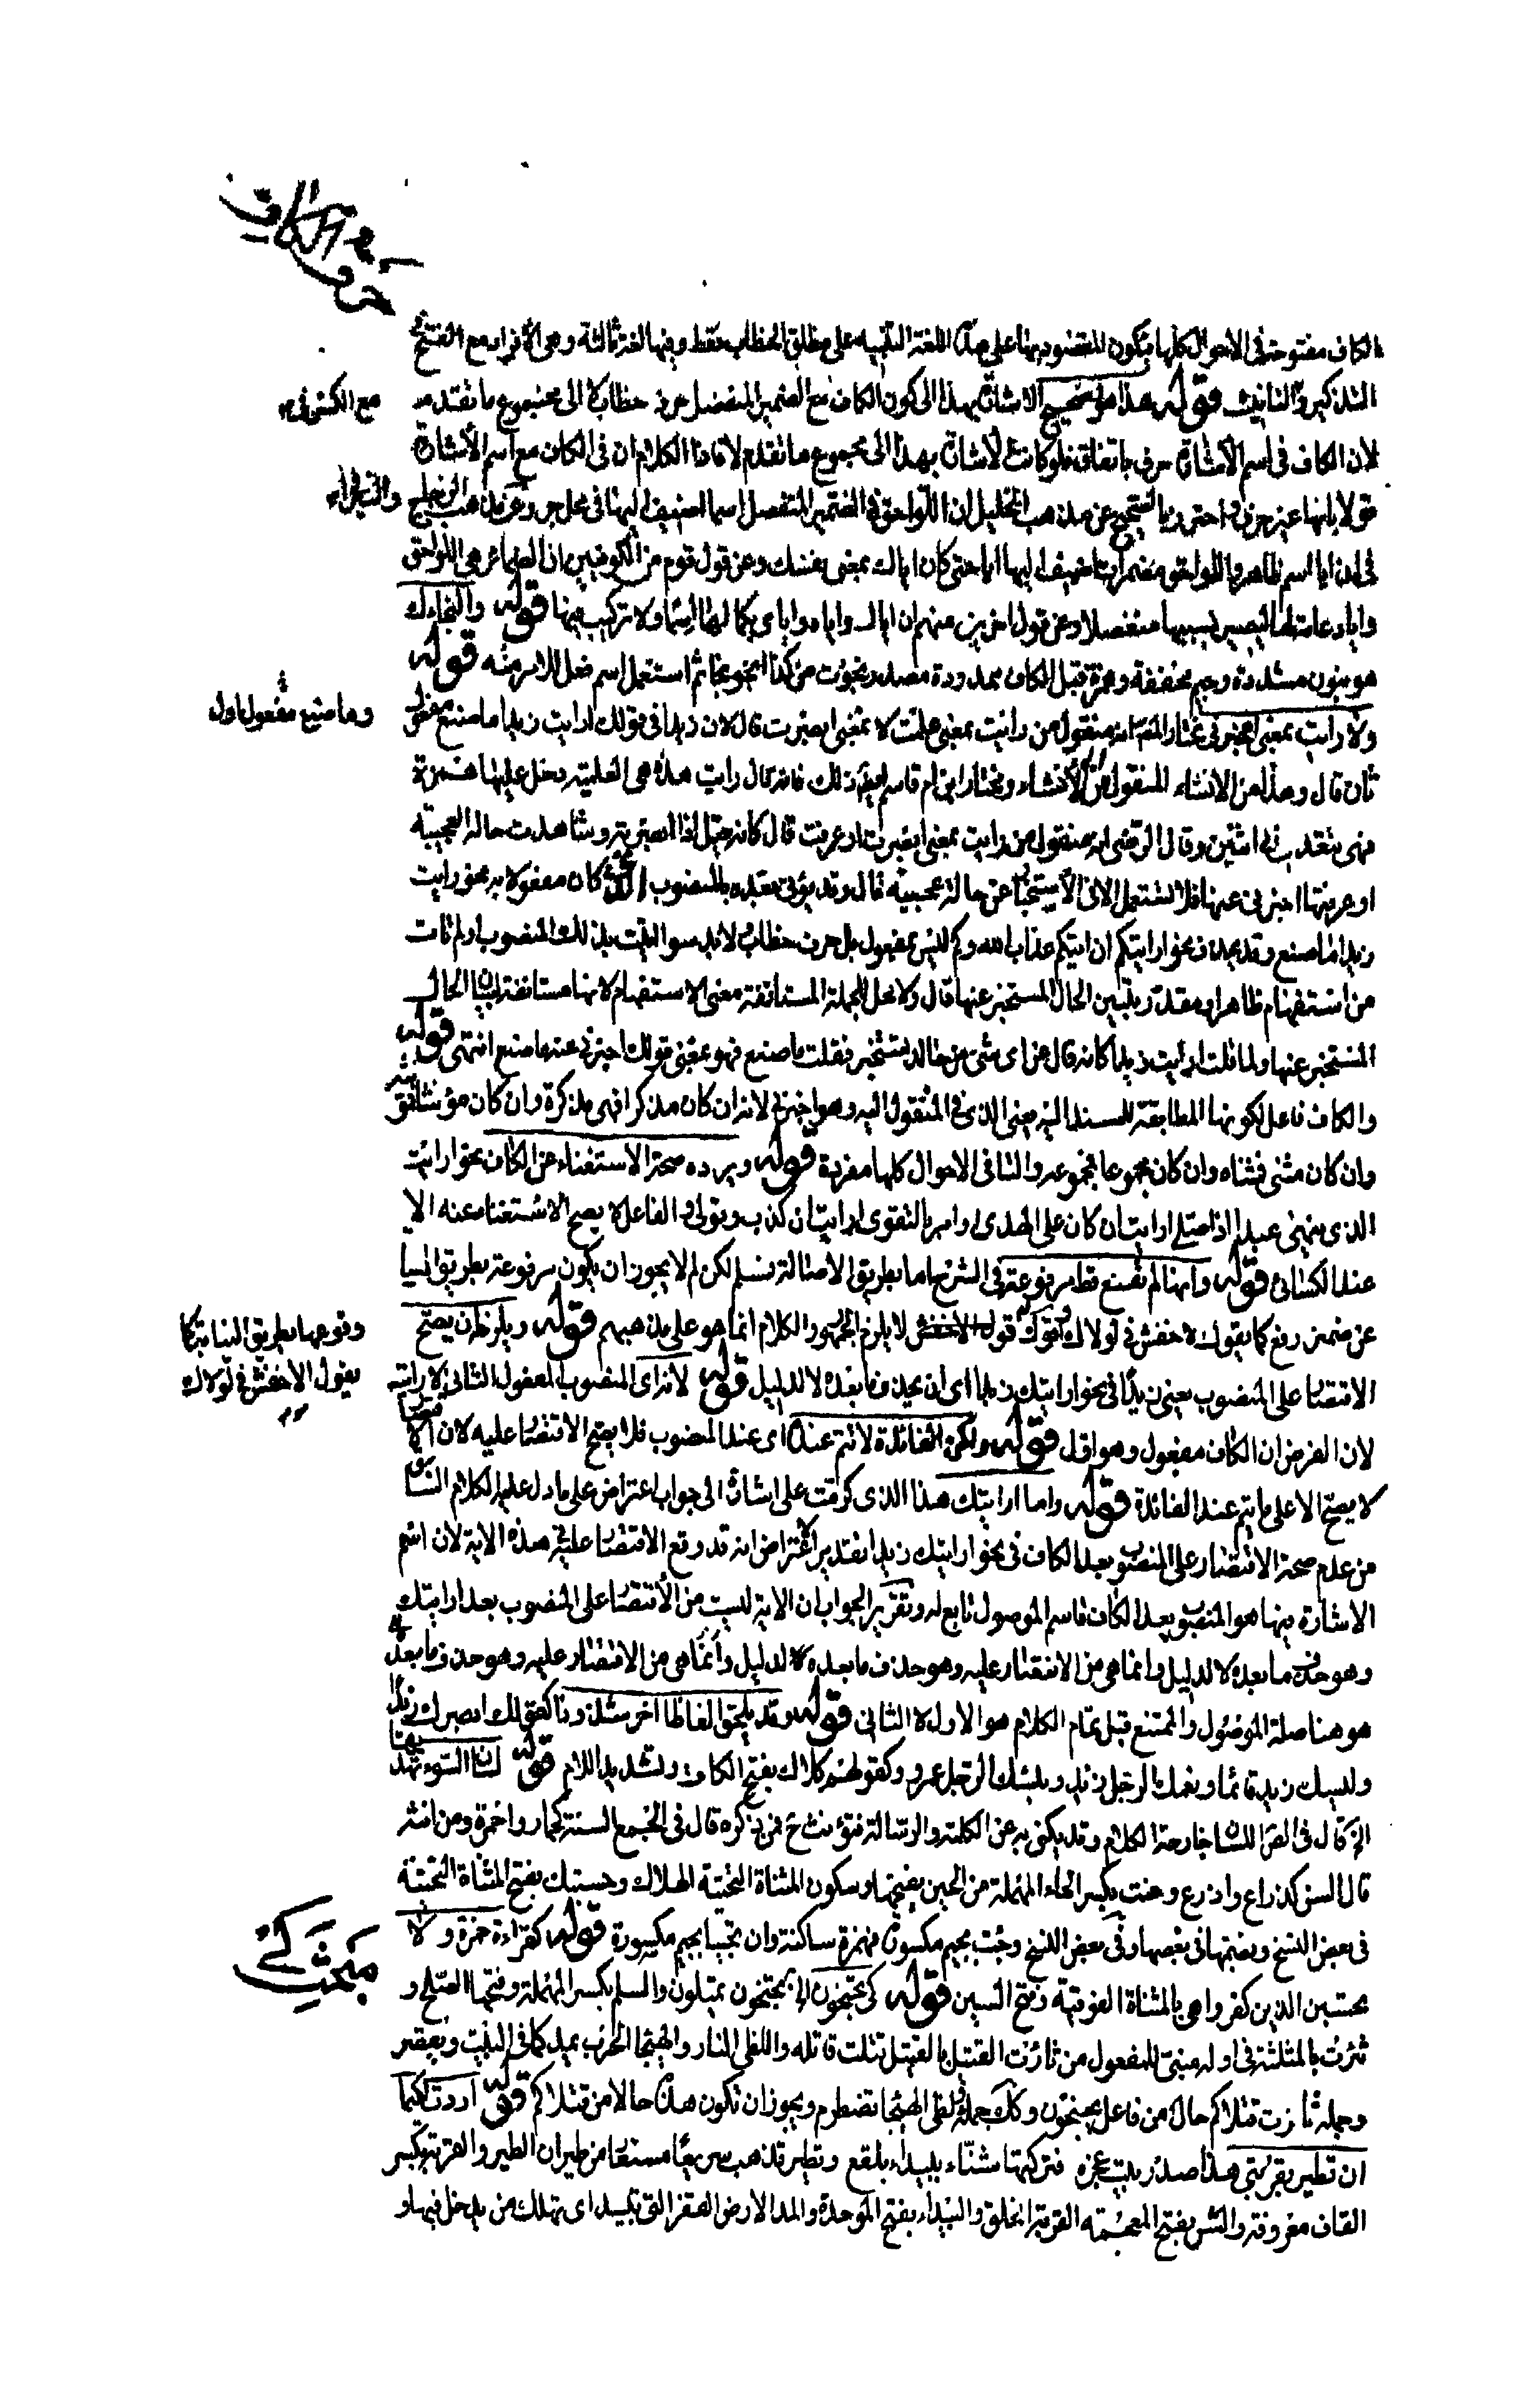 حرف الكاف
الكاف مفتوحة في الاحوال كلها فيكون المقصود بها على هذه اللغة التنبيه على مطلق الخطاب فقط وفيها لغة ثالثة وهي الافراد مع الفتح في
التذكير والتانيث قوله هذا هو الصحيح الاشارة بهذا الى كون الكاف مع الضمير المنفصل حرف خطاب لا الى مجموع ما تقدم
مع الكسر في
لان الكاف في اسم الاشارة حرف باتفاق فلو كانت الاشارة بهذا الى مجموع ما تقدم لافادنا الكلام ان في الكاف مع اسم الاشارة
قولا بانها غير حرف واحترز بالصحيح عن مذهب الخليل ان اللواحق في الضمير المنفصل اسما اضيف اليها في محل جر وعن مذهب الزجاج
والسيرافي
في ان ايا اسم ظاهر واللواحق مضمرات اضيف اليها ايا حتى كان اياك بمعنى نفسك وعن قول قوم من الكوفيين ان الضمائر هي اللواحق
وايا دعامة لها ليصير بسببها منفصلا وعن قول اخرين منهم ان اياك واياه واياي بكمالها اسما ولا تركيب فيها قوله والنجاءك
هو بنون مشددة وجيم مخففة وهمزة قبل الكاف ممدودة مصدر نجوت من كذا انجو نجاء ثم استعمل اسم فعل للامر منه قوله
ولا رايت بمعنى اخبرني مختار المص انه منقول من رايت بمعنى علمت لا بمعنى ابصرت قال لان زيدا في قولك ارايت زيدا ما صنع مفعول
وما صنع مفعول اول
ثان قال وهذا من الانشاء المنقول من الانشاء ومختار ابن ام قاسم ايضا ذلك فانه قال رايت هذه هي العلمية دخل عليها همزة
فهي تتعدى الى اثنين وقال الرضي انه منقول من رايت بمعنى ابصرت او عرفت قال كانه قيل اذا ابصرته وشاهدت حاله العجيبة
او عرفتها اخبرني عنها فلا تستعمل الا في الاستخبار عن حالة عجيبة قال وقد يؤتى بعده بالمنصوب الذي كان مفعولا به نحو رايت
زيدا ما صنع وقد يحذف نحو ارايتكم ان اتيكم عذاب الله وكم ليس بمفعول بل حرف خطاب ولا بد سوا اتيت بذلك المنصوب او لم تات
من استفهام ظاهر او مقدر يتبين الحال المستخبر عنها قال ولا محل للجملة المستانفة معنى الاستفهام لانها مستانفة لبيان الحال
المستخبر عنها ولما قلت ارايت زيدا كانه قال عن اي شيء من حاله تستخبر فقلت ما صنع فهو بمعنى قولك اخبرني عنه ما صنع انتهى قوله
والكاف فاعل لكونها المطابقة للمسند اليه يعني الذي في المنقول اليه وهو اخبرني لانه ان كان مذكرا فهي مذكرة وان كان مؤنثا فمؤنثة
وان كان مثنى فمثناه وان كان مجموعا فمجموعه والتا في الاحوال كلها مفردة قوله ويرده صحة الاستغناء عن الكاف نحو ارايت
الذي ينهى عبدا اذا صلى ارايت ان كان على الهدى او امر بالتقوى ارايت ان كذب وتولى والفاعل لا يصح الاستغناء عنه الا
عند الكسائي قوله وانها لم تقع قط مرفوعة في الشرح اما بطريق الاصالة فمسلم لكن لم لا يجوز ان يكون مرفوعة بطريق النيابة
عن ضمير رفع كما يقول الاخفش في لولاك واقول قول الاخفش لا يلزم الجمهور والكلام انما هو على مذهبهم قوله ويلزم ان يصح
وقوعها بطريق النيابة كما
يقول الاخفش في لولاك
الاقتصار على المنصوب يعني زيدا في نحو ارايتك زيدا اي ان يحذف ما بعده لا لدليل قوله لانه اي المنصوب المفعول الثاني لارايت
لان الفرض ان الكاف مفعول وهو اول قوله ولكن الفائدة لا تتم عنده اي عند المنصوب فلا يصح الاقتصار عليه لان الاقتصار
لا يصح الا على ما يتم عنده الفائدة قوله واما ارايتك هذا الذي كرمت علي اشارة الى جواب اعتراض على ما دل عليه الكلام السابق
من عدم صحة الاقتصار على المنصوب بعد الكاف في نحو ارايتك زيدا تقدير الاعتراض انه قد وقع الاقتصار عليه في هذه الاية لان اسم
الاشارة فيها هو المنصوب بعد الكاف فاسم الموصول تابع له وتقرير الجواب ان الاية ليست من الاقتصار على المنصوب بعد ارايتك
وهو حذف ما بعده لا لدليل وانما هي من الاقتصار عليه وهو حذف ما بعده لا لدليل وانما هي من الاقتصار عليه وهو حذف ما بعده
هو هنا صلة الموصول والممتنع قبل تمام الكلام هو الاول لا الثاني قوله وقد يلحق الفاظا اخر شذوذا كقولك ابصرك زيدا
وليسك زيد قائما ونعمك الرجل زيد وبئسك الرجل عمرو وكقولهم كلاك بفتح الكاف وتشديد اللام قوله لسان السوء تهديها
الخ قال في الصحاح اللسان جارحة الكلام وقد يكنى به عن الكلمة والرسالة فتؤنث فمن ذكره قال في الجمع السنة كحمار واحمرة ومن انثه
قال السن كذراع واذرع وحنت بكسر الحاء المهملة من الحين بفتحها وسكون المثناة التحتية الهلاك وحسبتك بفتح المثناة التحتية
في بعض النسخ وبضمها في بعضها وفي بعض النسخ وجئت بجيم مكسورة فهمزة ساكنة وان تجيئا بجيم مكسورة قوله كقراءة حمزة ولا
مبحث كي
يحسبن الذين كفروا هي بالمثناة الفوقية وفتح السين قوله كي تجنحون الخ تجنحون تميلون والسلم بكسر المهملة وفتحها الصلح و
ثئرت بالمثلثة في اوله مبني للمفعول من ثارت القتيل بالقتيل قتلت قاتله واللظى النار والهيجا الحرب يمد كما في البيت ويقصر
وجملة ثئرت قتلاكم حال من فاعل تجنحون وكذلك جملة ولظى الهيجا تضطرم ويجوز ان تكون هذه حالا من قتلاكم قوله اردت لكيما
ان تطير بقربتي هذا صدر بيت عجزه فتتركها شنا ببيداء بلقع وتطير تذهب سريعا مستعار من طيران الطير والقربة بكسر
القاف معروفة والشن بفتح المعجمة القربة الخلق والبيداء بفتح الموحدة والمد الارض القفر التي تبيد اي تهلك من يدخل فيها و